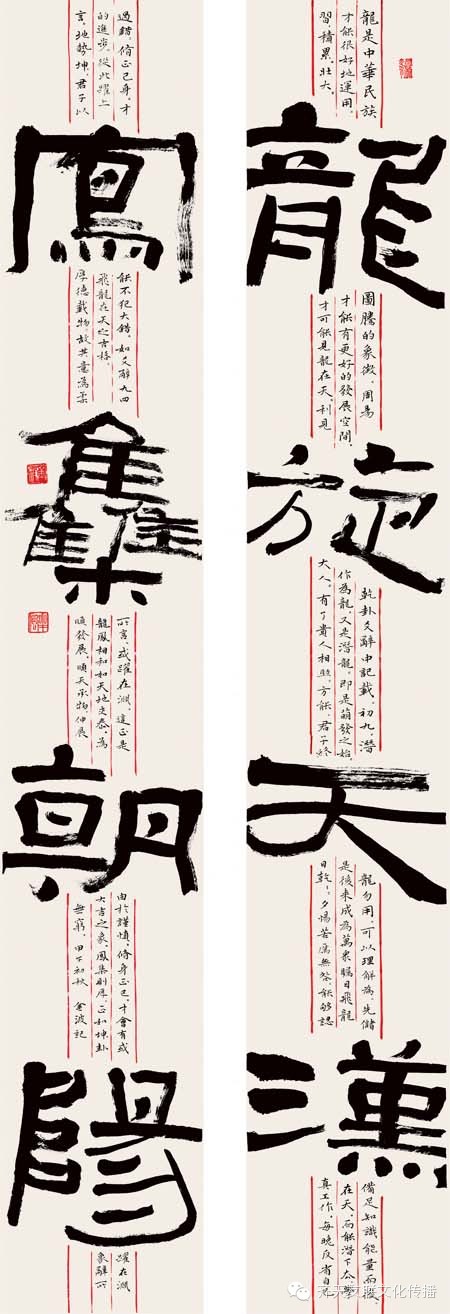 龍旋天漢
龍是中華民族圖騰的象徵，周易乾卦爻辭中記載，初九，潛龍勿用，可以理解為，先儲備足知識能量而後
才能很好地運用，才能有更好的發展空間，作為龍，又是潛龍，即是萌發之始，是後來成為萬衆矚目飛龍在天，而能潛下心學
習，積累，壯大。才可能見龍在天，利見大人，有了貴人相照，方能，君子終日乾乾，夕惕若厲無咎，能夠認真工作，每晚反省自
鳳集朝陽
過錯，脩正己身，才能不犯大錯，如爻辭九四所言，或躍在淵，這正是由於謹慎，脩身正己，才會有或躍在淵
的進步，從此躍上飛龍在天之吉格，龍鳳相和如天地交泰，為大吉之象，鳳集則厚，正如坤卦象辭所
言，地勢坤，君子以厚德載物，故其意為柔順發展，順天承物，伸展無窮。甲午初秋 金波記